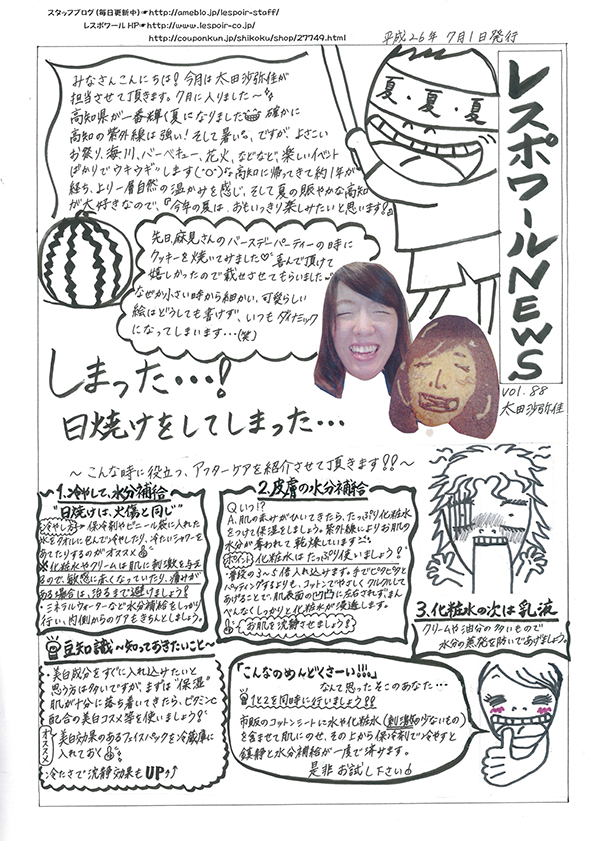 スタッフブログ(毎日更新中)☞http://ameblo.jp/lespoir-staff/
レスポワールHP☞http://www.lespoir-co.jp/
http://couponkun.jp/shikoku/shop/27749.html
平成26年 7月1日発行
レスポワールNEWS
vol.88
太田沙弥佳
夏・夏・夏
みなさんこんにちは!今月は太田沙弥佳が
担当させて頂きます。7月に入りました～
高知県が一番輝く夏になりました 確かに
高知の紫外線は強い!そして暑いな、ですが よさこい
お祭り、海、川、バーベキュー、花火、などなど、楽しいイベント
ばかりでウキウキしますな高知に帰ってきて約1年が
経ち、より一層自然の温かみを感じ、そして夏の賑やかな高知
が大好きなので、『今年の夏は、おもいっきり楽しみたいと思います!』
先日、麻見さんのバースデーパーティーの時に
クッキーを焼いてみました♡喜んで頂けて
嬉しかったので載せさせてもらいました
なぜか小さい時から細かい、可愛らしい
絵はどうしても書けず、いつもダイナミック
になってしまいます…(笑)
しまった…!
日焼けをしてしまった…
～こんな時に役立つ、アフターケアを紹介させて頂きます!!～
1.冷やして、水分補給
"日焼けは、火傷と同じ"
冷やし方→保冷剤やビニール袋に入れた
氷をタオルに包んで冷やしたり、冷たいシャワーを
あてたりするのがオススメ
※化粧水やクリームは肌に刺激を与え
るので、敏感に赤くなっていたり、痛みが
ある場合は、治るまで避けましょう!
・ミネラルウォーターなど水分補給をしっかり
行い、内側からのケアをきちんとしましょう。
2.皮膚の水分補給
Q.いつ!?
A.肌の赤みがひいてきたら、たっぷり化粧水
をつけて保湿をしましょう。紫外線によりお肌の
水分が奪われて乾燥しています
ポイント 化粧水はたっぷり使いましょう!
普段の3～5倍入れ込みます。手でピタピタと
パッティングするよりも、コットンでやさしくクルクルして
あげることで、肌表面の凹凸に左右されず、まん
べんなくしっかりと化粧水が浸透します。
お肌を沈静させましょう!
3.化粧水の次は乳液
クリームや油分の多いもので
水分の蒸発を防いであげましょう。
豆知識～知っておきたいこと～
・美白成分をすぐに入れ込みたいと
思う方は多いですが、まずは"保湿"
肌が十分に落ち着いてきたら、ビタミンC
配合の美白コスメ等を使いましょう!
オススメ
・美白効果のあるフェイスパックを冷蔵庫に
入れておく
・冷たさで沈静効果もUP↑
「こんなのめんどくさーい!!!」
なんて思ったそこのあなた…
1と2を同時に行いましょう!!
市販のコットンシートに水や化粧水(刺激の少ないもの)
を含ませて肌にのせ、その上から保冷剤で冷やすと
鎮静と水分補給が一度で済みます。
是非お試し下さい